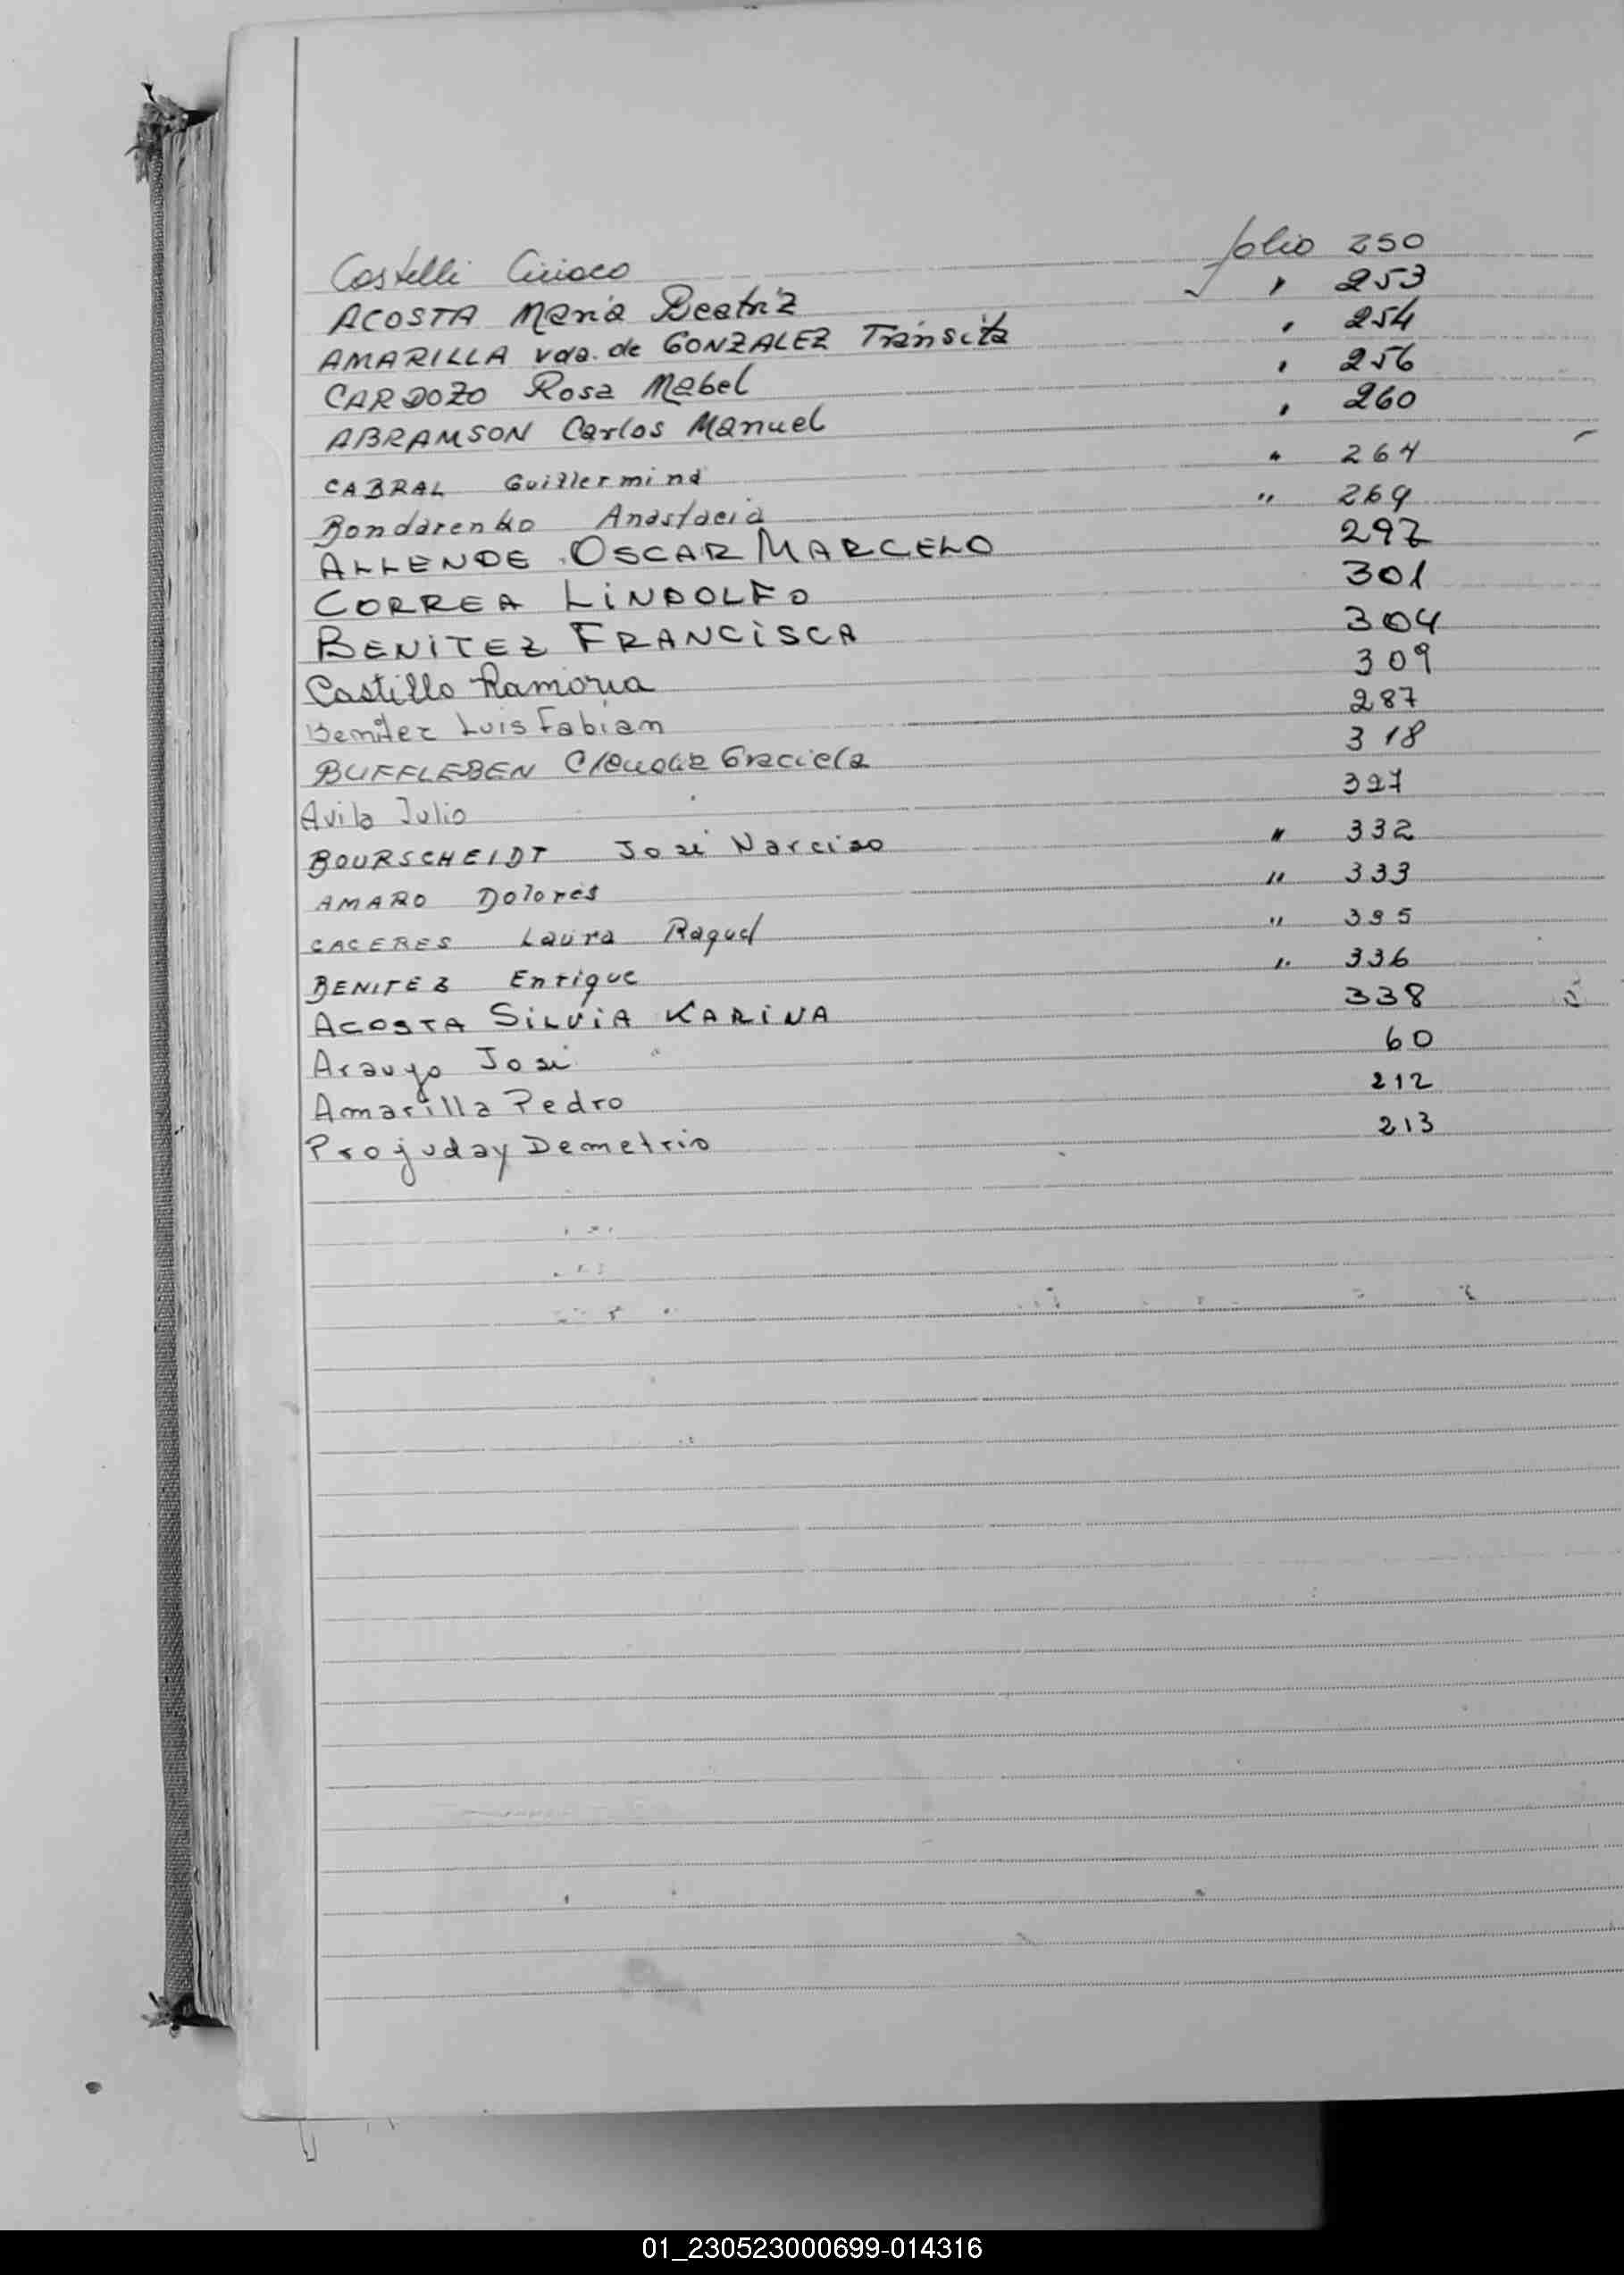 Castelli Ciriaco folio 250
ACOSTA María Beatriz " 253
AMARILLA vda. de GONZALEZ Tránsita " 254
CARDOZO Rosa Mabel " 256
ABRAMSON Carlos Manuel " 260
CABRAL Guillermina " 264
Bondarenko Anastacia " 269
ALLENDE OSCAR MARCELO 297
CORREA LINDOLFO 301
BENITEZ FRANCISCA 304
Castillo Ramona 309
Benitez Luis Fabian 287
BUFFLEBEN Claudia Graciela 318
Avila Julio 327
BOURSCHEIDT José Narciso " 332
AMARO Dolores " 333
CACERES Laura Raquel " 335
BENITEZ Enrique " 336
ACOSTA SILVIA KARINA 338
Araujo José 60
Amarilla Pedro 212
Projuday Demetrio 213
01_230523000699-014316